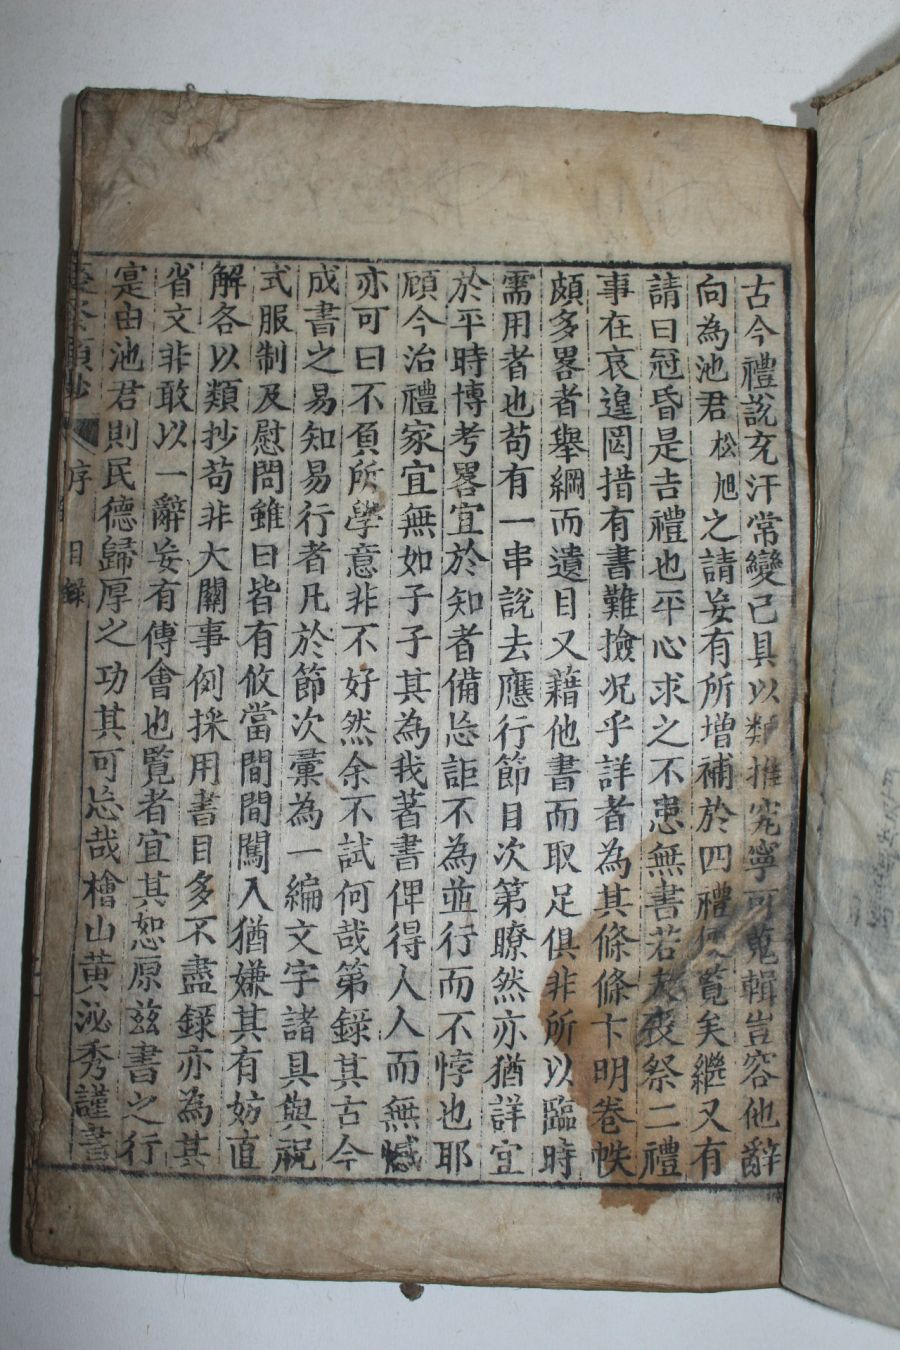 古今禮說充汗常變已具以類推究寧可蒐輯豈容他辭
向為池君松旭之請妄有所增補於四禮便覽矣繼又有
請曰冠昏是吉禮也平心求之不患無書若喪祭二禮
事在哀遑罔措有書難撿况乎詳者為其條條卞明卷帙
頗多畧者舉綱而遺目又藉他書而取足俱非所以臨時
需用者也苟有一串說去應行節目次第瞭然亦猶詳宜
於平時博考畧宜於知者備忘詎不為並行而不悖也耶
顧今治禮家宜無如子子其為我著書俾得人人而無憾
亦可曰不負所學意非不好然余不試何哉第錄其古今
成書之易知易行者凡於節次彙為一編文字諸具與祝
式服制及慰問雖曰皆有攸當間間闖入猶嫌其有妨直
解各以類抄苟非大關事例採用書目多不盡錄亦為其
省文非敢以一辭妄有傅會也覽者宜其恕原玆書之行
寔由池君則民德歸厚之功其可忘哉檜山黃泌秀謹書
序 目錄